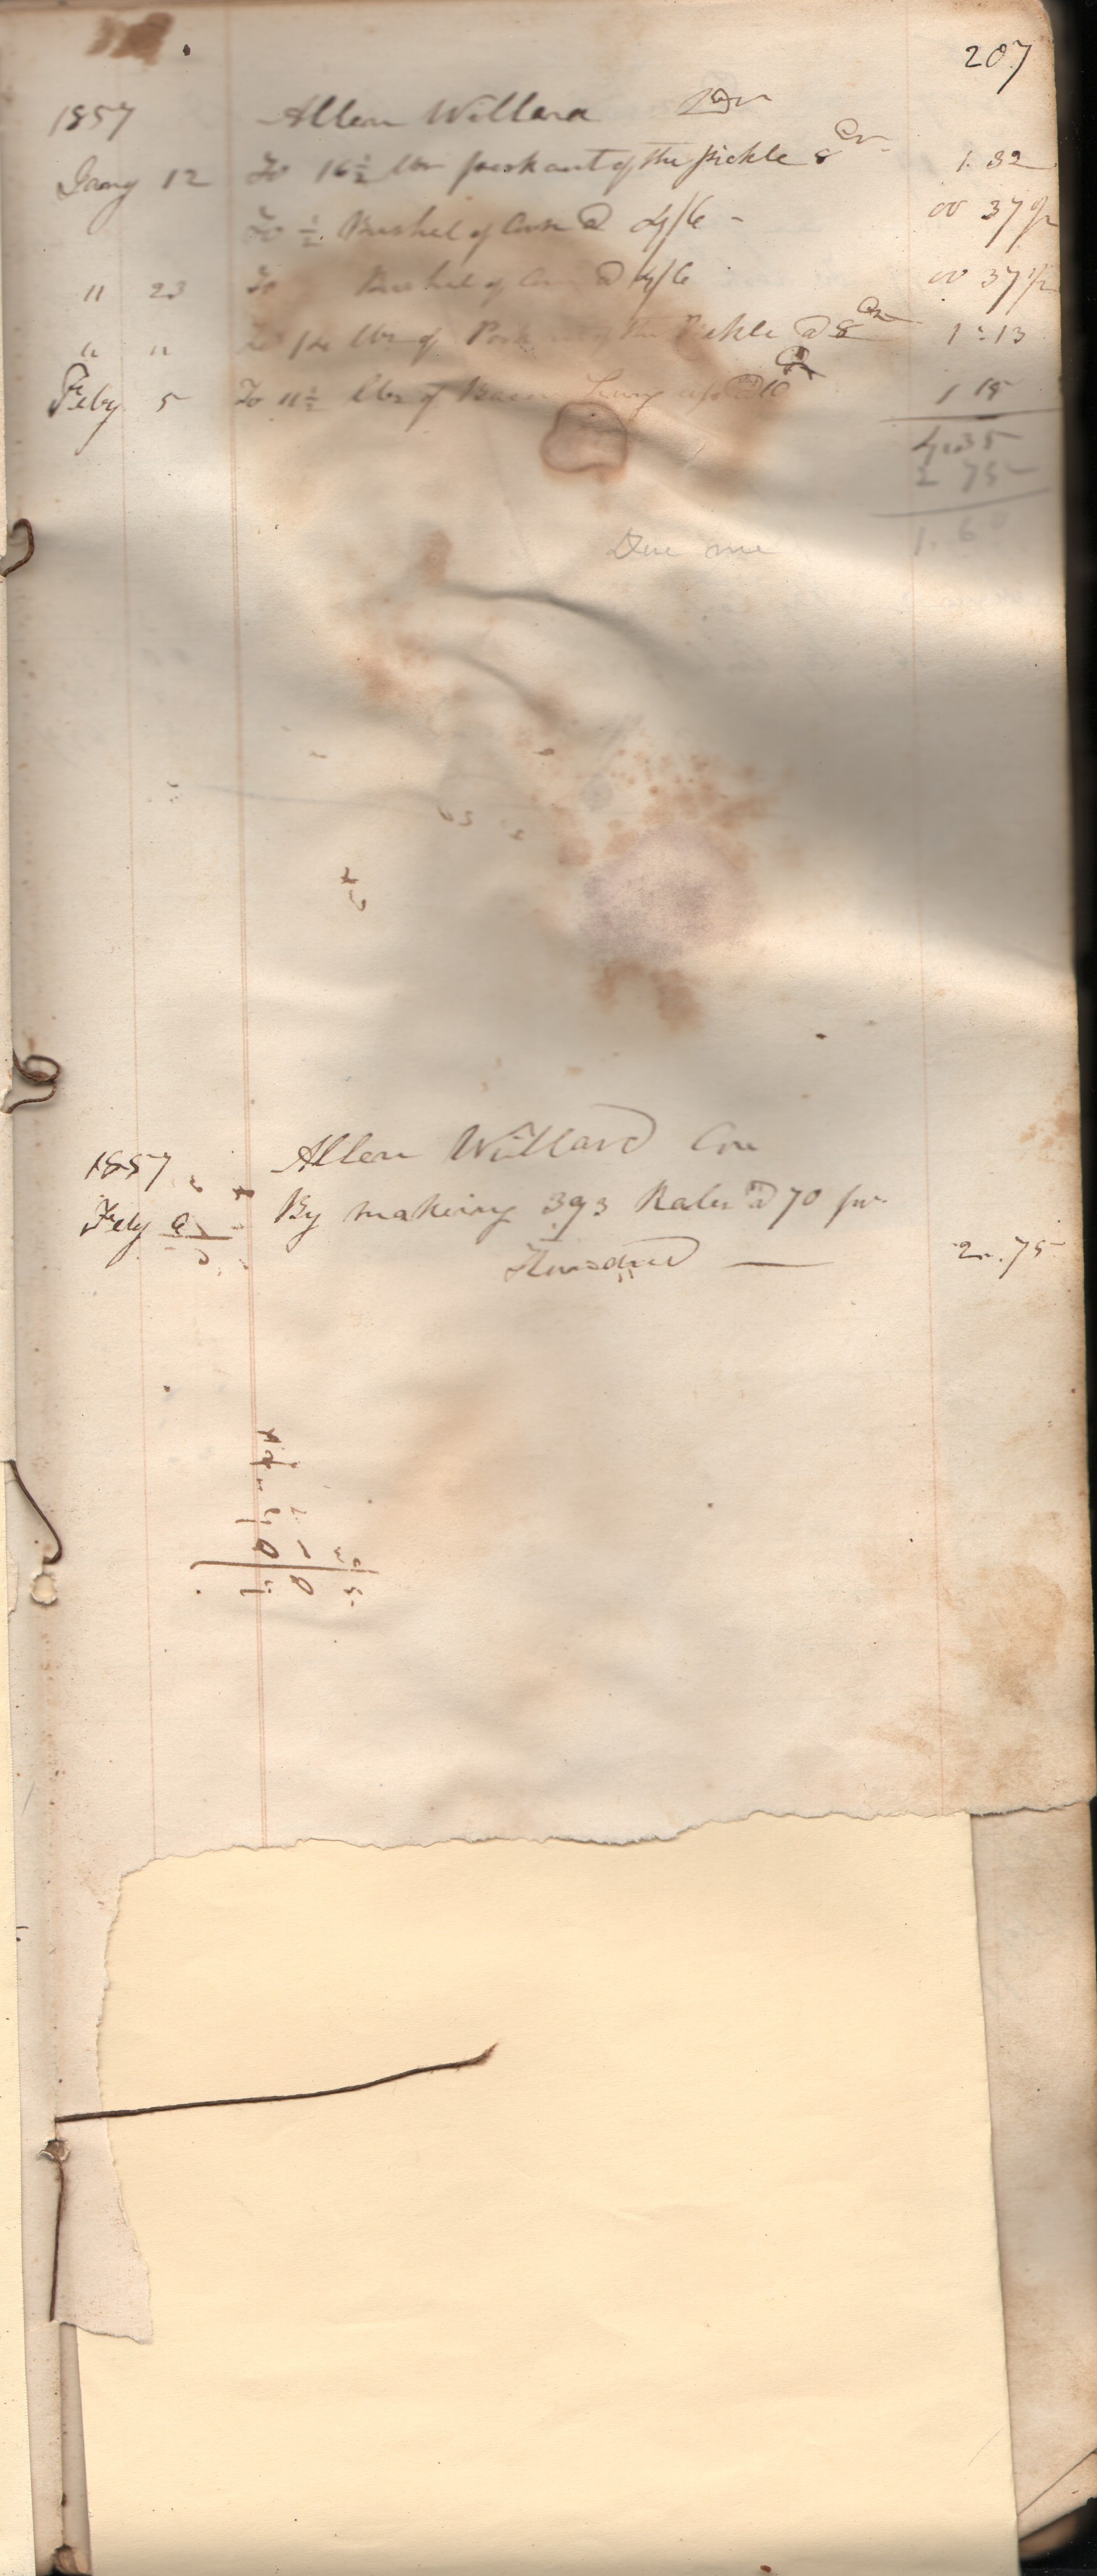 207
1857 Allen Willard Dr
Jany 12 To 16 1/2 lbs pork out of the pickle 8 cts 1.32
To 1/2 Bushel of Corn @ 4/6 - 00 37 1/2
" 23 To Bushel of Corn @ 4/6 00 37 1/2
" " To 14 lbs of Pork the Pickle @ 8 cts 1:13
Feby 5 To 11 1/2 lbs of Bacon @ 10 cts 1 15
4.35
2 75
Due me 1.60
1857 Allen Willard Cr
Feby By making 393 Rales @ 70 pr
Hundred — 2.75